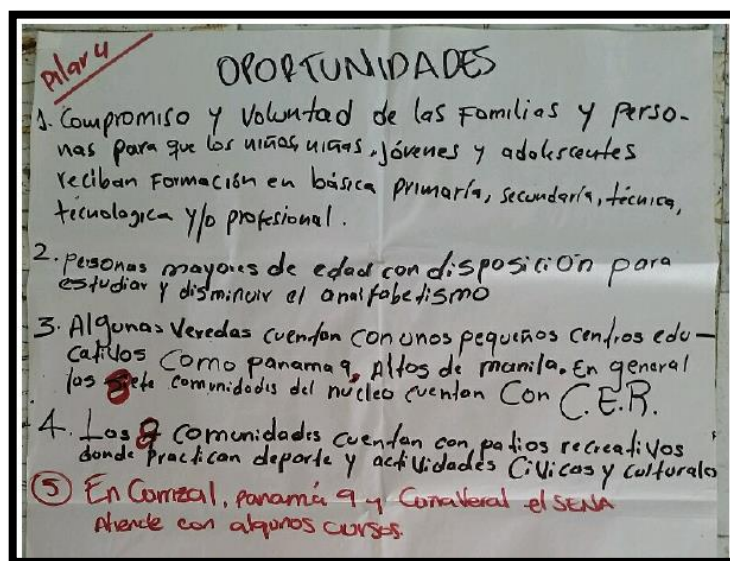 Pilar 4
OPORTUNIDADES
1. Compromiso y Voluntad de las Familias y Perso-
nas para que los niños, niñas, Jóvenes y adolescentes
reciban Formación en básica primaria, secundaria, técnica,
tecnologica y/o profesional.
2. Personas mayores de edad con disposición para
estudiar y disminuir el analfabetismo
3. Algunas Veredas cuentan con unos pequeños centros edu-
cativos como panama 9, Altos de manila. En general
las 8 comunidades del núcleo cuentan con C.E.R.
4. Las comunidades cuentan con patios recreativos
donde practican deporte y actividades Civicas y culturales
5 En Corrozal, panamá 9 y Cañaveral el SENA
Atiende con algunos cursos.